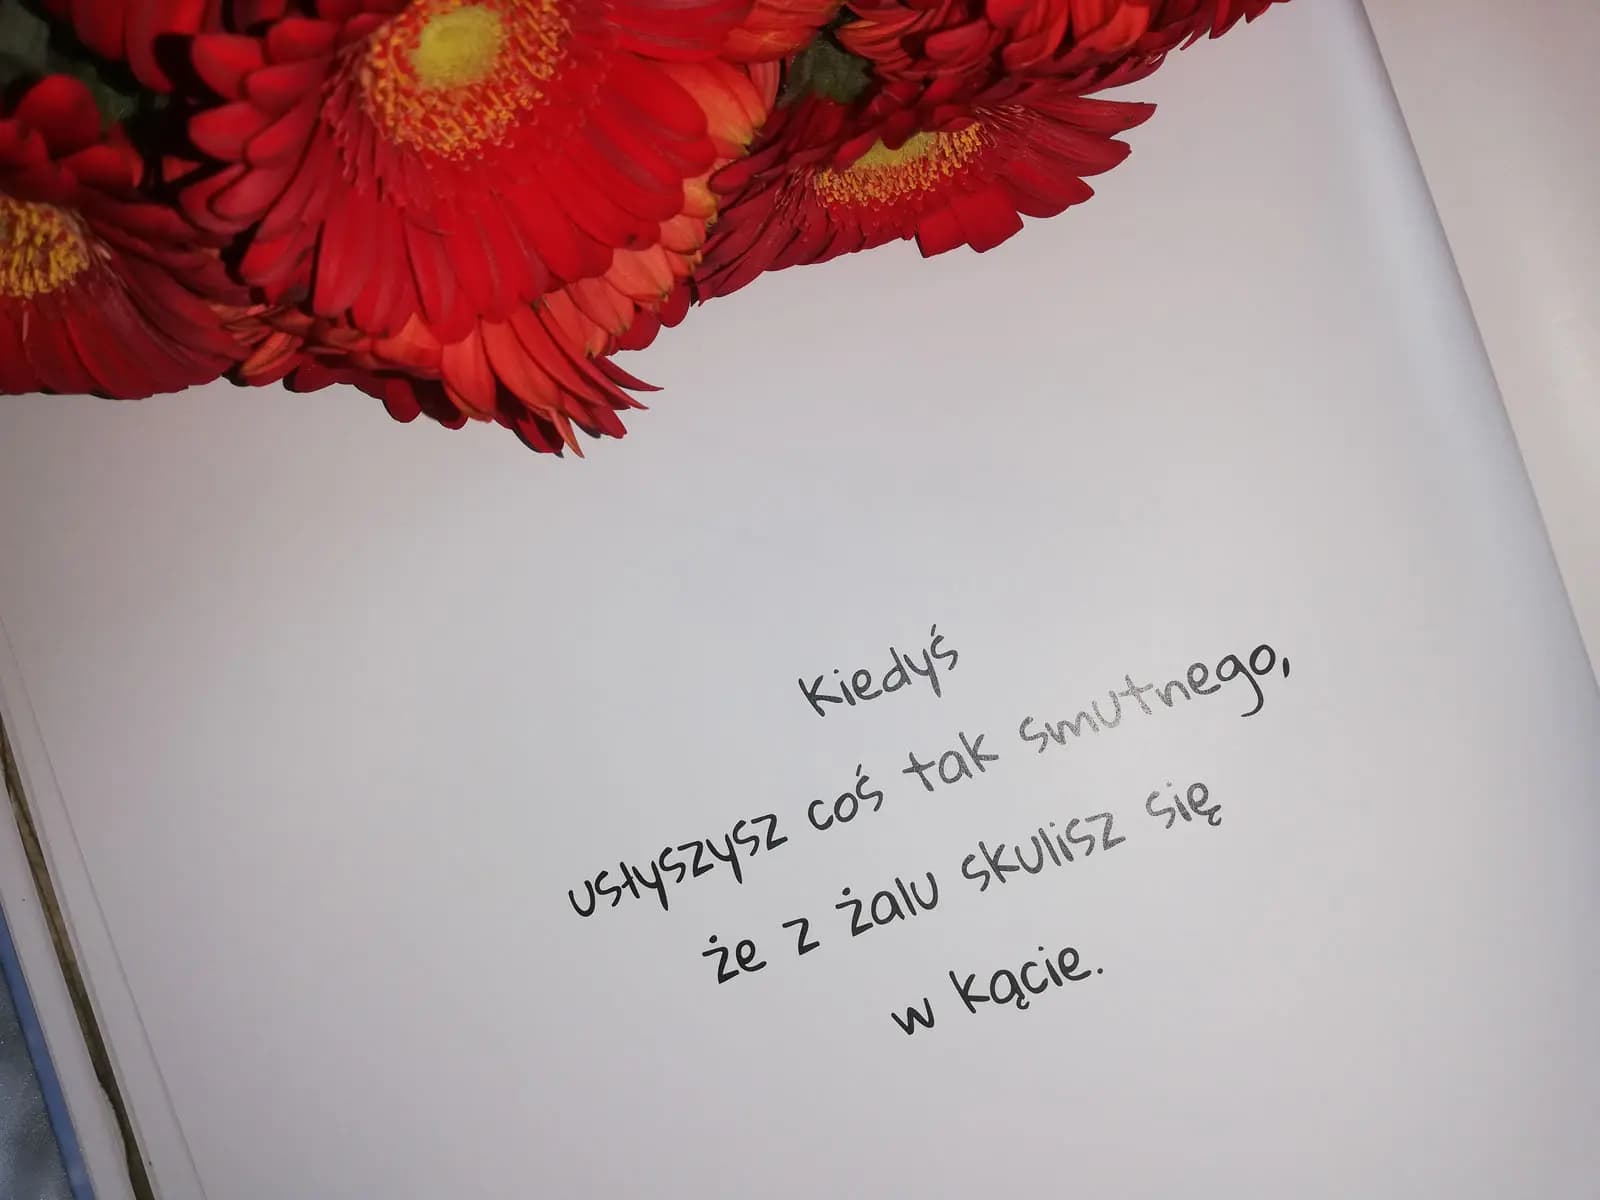 Kiedyś
usłyszysz coś tak smutnego,
że z żalu skulisz się
w kącie.